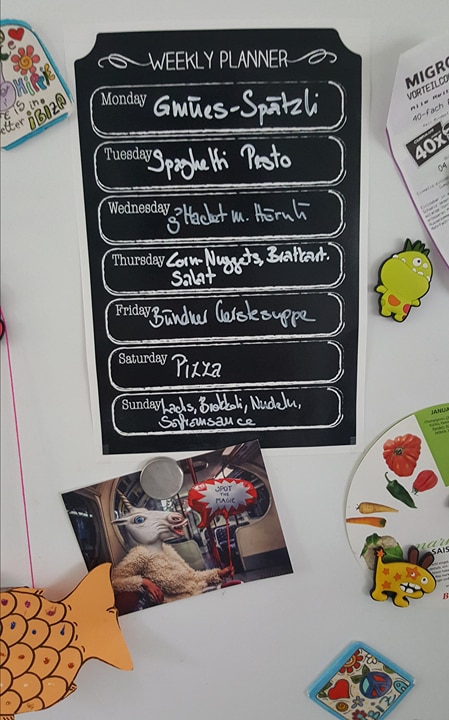 WEEKLY PLANNER
Monday Gmües-Spätzli
Tuesday Spaghetti Pesto
Wednesday g'Hacket m. Hörnli
Thursday Corn Nuggets, Bratkart.
Salat
Friday Bündner Gerstesuppe
Saturday Pizza
Sunday Lachs, Brokkoli, Nudeln,
Safransauce
SPOT
THE
MAGIC
MIGRO
VORTEILCO
40-Fach
40X
04
JANUA
SAIS
IBIZA